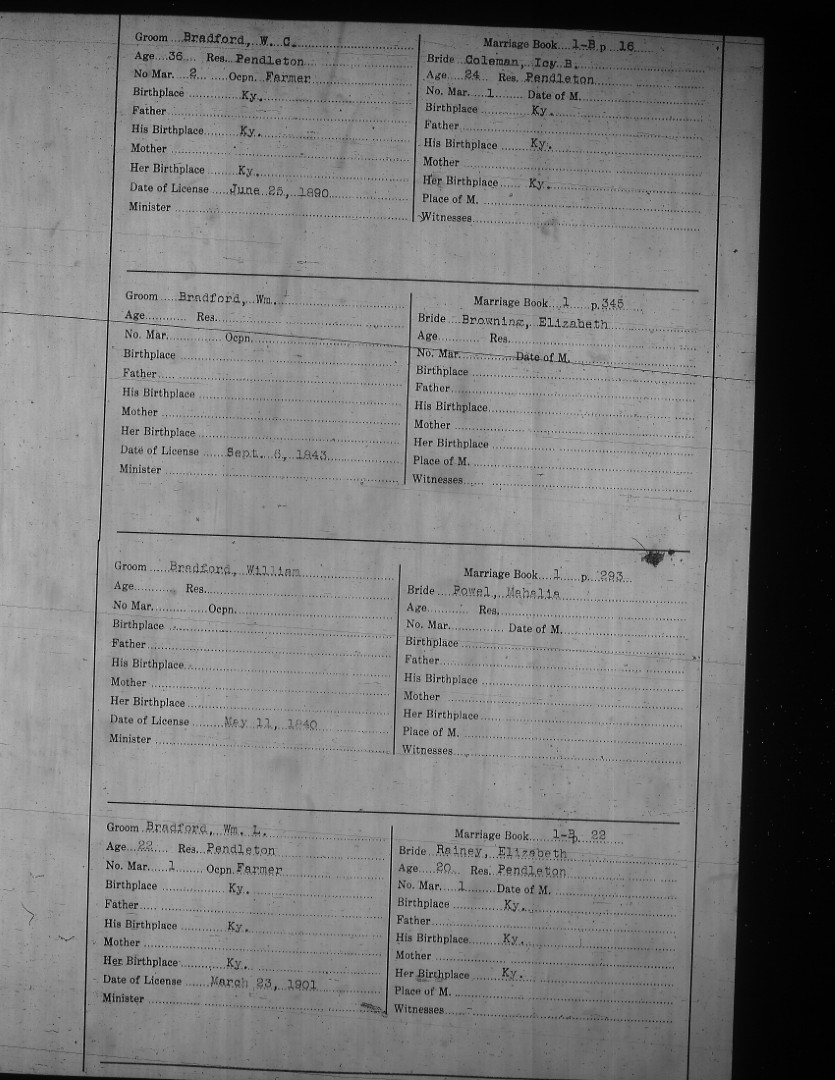 Groom Bradford, W. C.
Age 36 Res. Pendleton
No Mar. 2 Ocpn. Farmer
Birthplace Ky.
Father
His Birthplace Ky.
Mother
Her Birthplace Ky.
Date of License June 25, 1890
Minister
Marriage Book 1-B p 16
Bride Coleman, Icy B.
Age 24 Res. Pendleton
No. Mar. 1 Date of M.
Birthplace Ky.
Father
His Birthplace Ky.
Mother
Her Birthplace Ky.
Place of M.
Witnesses
Groom Bradford, Wm.
Age Res.
No. Mar. Ocpn.
Birthplace
Father
His Birthplace
Mother
Her Birthplace
Date of License Sept. 6, 1843
Minister
Marriage Book 1 p. 345
Bride Browning, Elizabeth
Age Res.
No. Mar. Date of M.
Birthplace
Father
His Birthplace
Mother
Her Birthplace
Place of M.
Witnesses
Groom Bradford, William
Age Res.
No Mar. Ocpn.
Birthplace
Father
His Birthplace
Mother
Her Birthplace
Date of License May 11, 1840
Minister
Marriage Book 1 p. 293
Bride Powel, Mahalia
Age Res.
No. Mar. Date of M.
Birthplace
Father
His Birthplace
Mother
Her Birthplace
Place of M.
Witnesses
Groom Bradford, Wm. L.
Age 22 Res. Pendleton
No. Mar. 1 Ocpn. Farmer
Birthplace Ky.
Father
His Birthplace Ky.
Mother
Her Birthplace Ky.
Date of License March 23, 1901
Minister
Marriage Book 1-B p 22
Bride Rainey, Elizabeth
Age 20 Res. Pendleton
No. Mar. 1 Date of M.
Birthplace Ky.
Father
His Birthplace Ky.
Mother
Her Birthplace Ky.
Place of M.
Witnesses